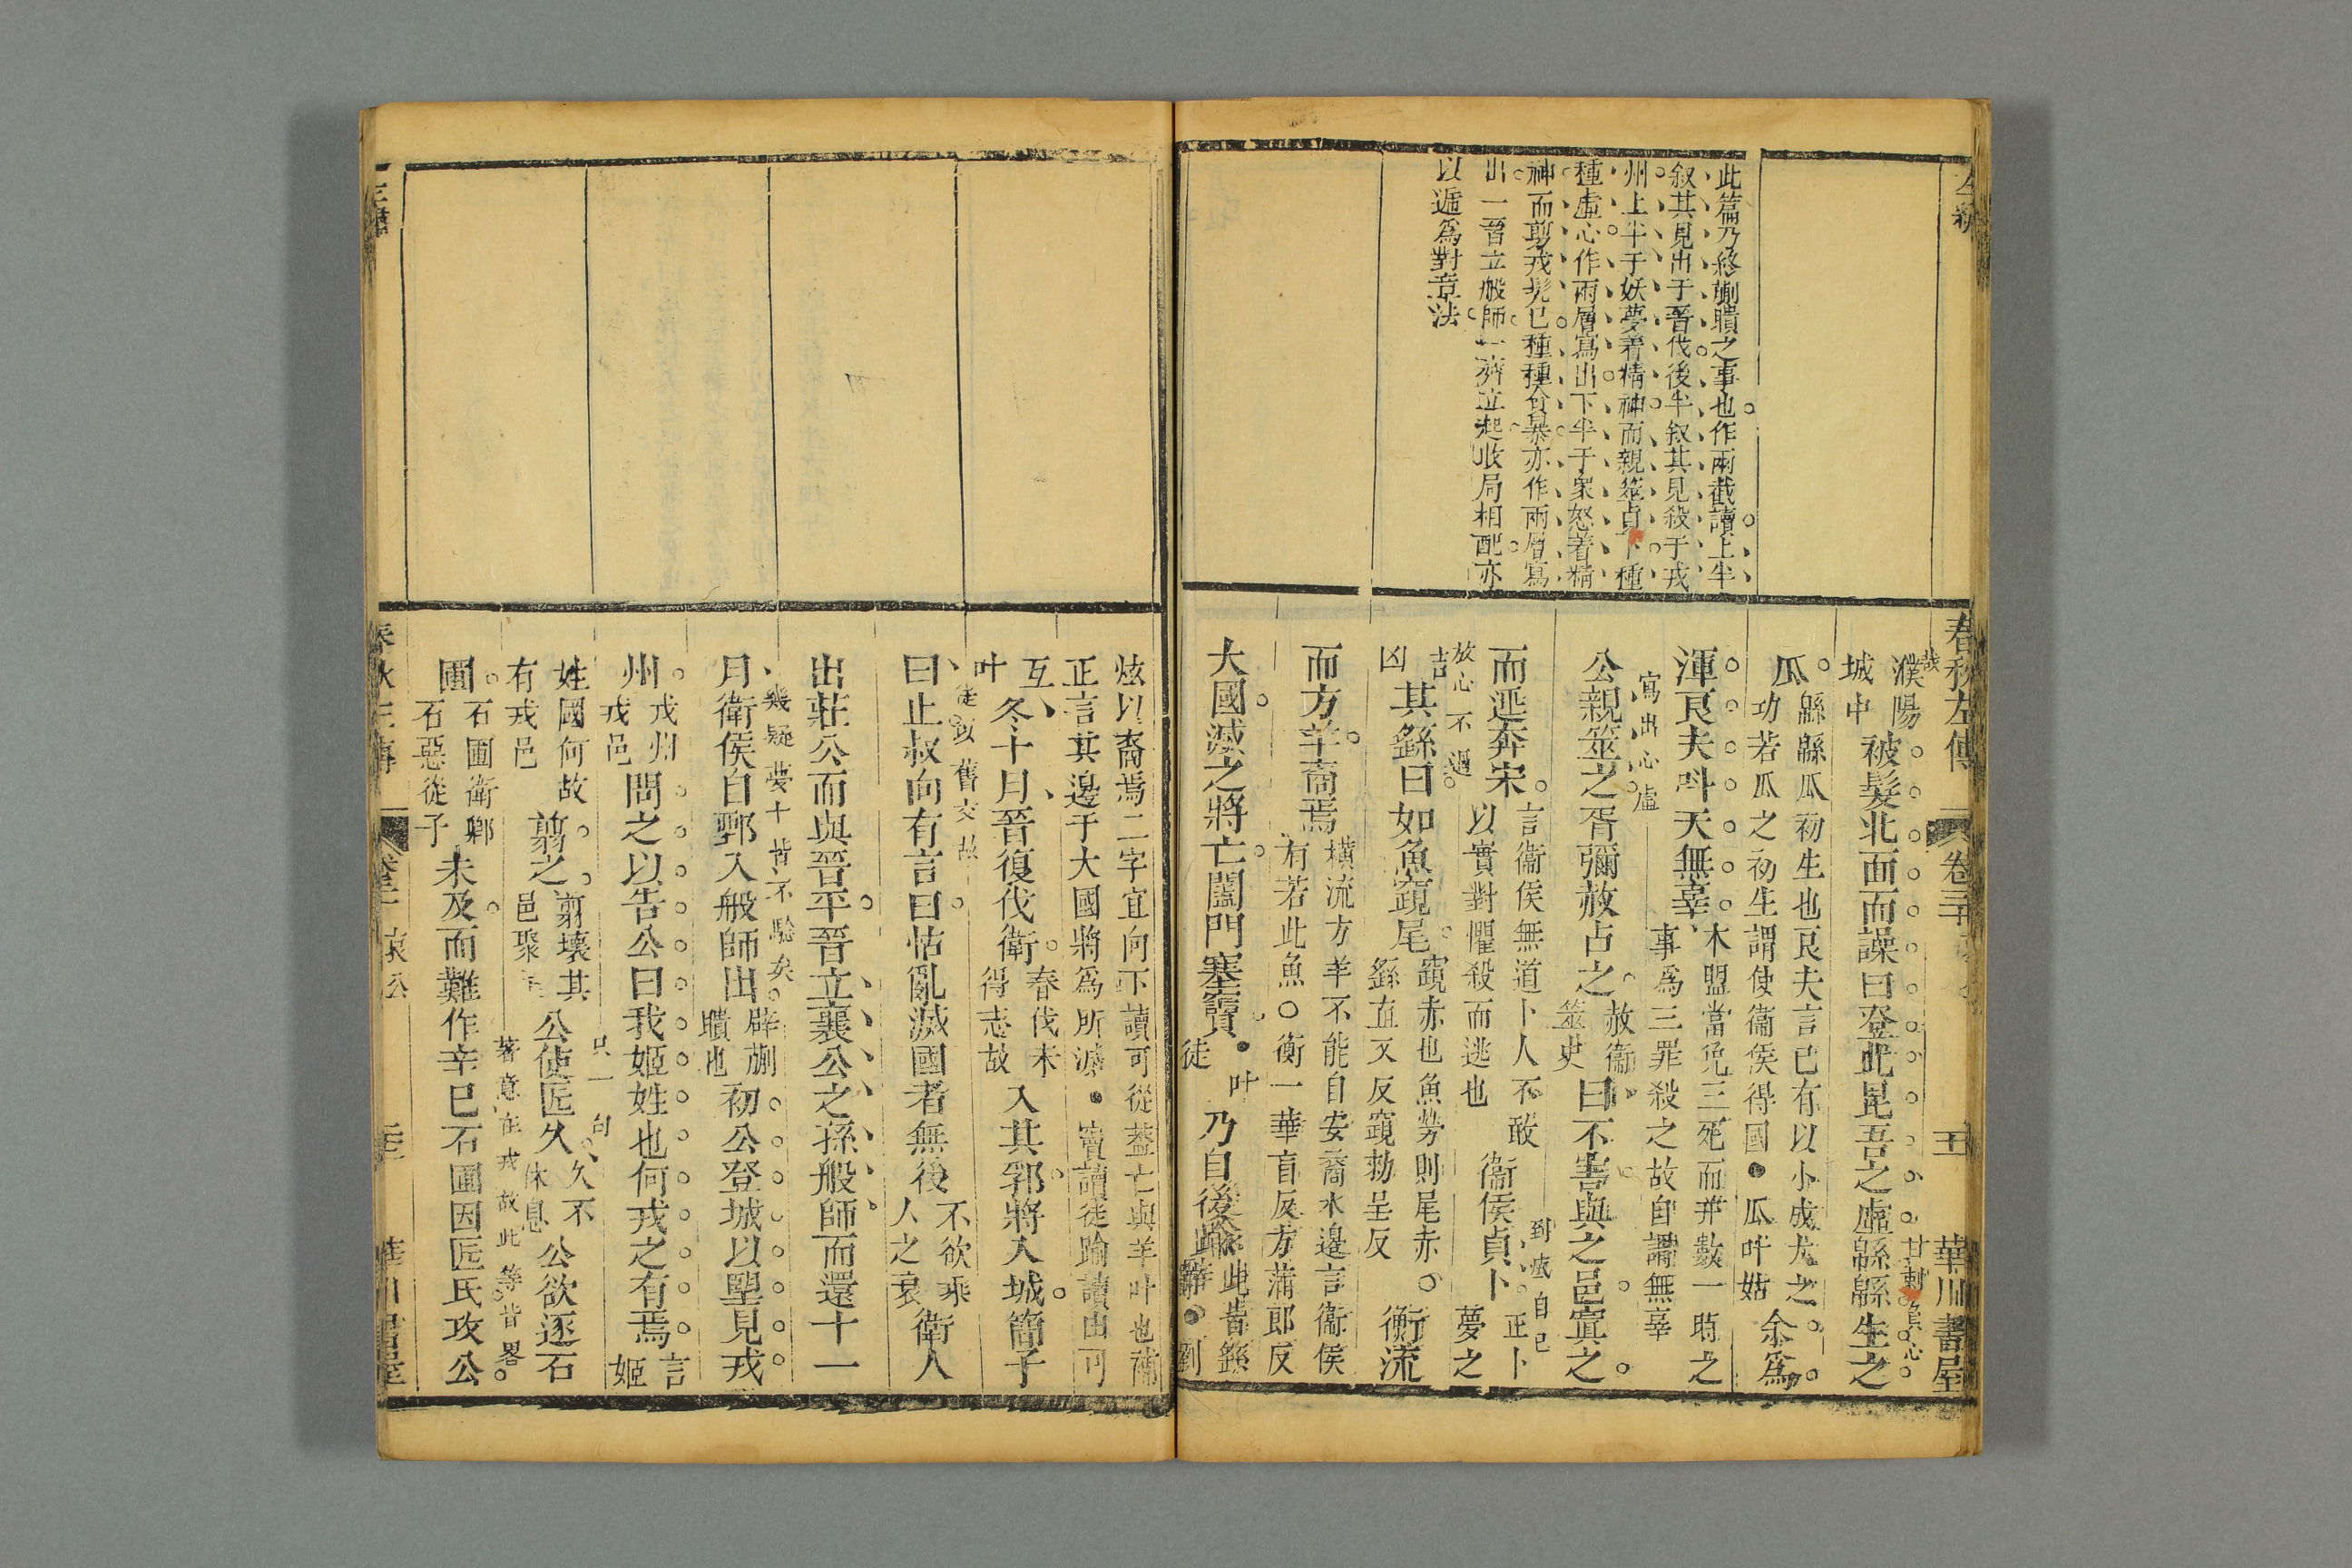 此篇乃終蒯聵之事也作兩截讀上半
叙其見出于晉伐後半叙其見殺于戎
州上半于妖夢着精神而親筮貞卜種
種虛心作兩層寫出下半于衆怒着精
神而剪戎髡己種種貪暴亦作兩層寫
出一晉立般師一齊立起收局相配亦
以遞爲對章法
春秋左傳 卷三十 華川書屋
濮陽
城中
被髮北面而譟曰登此昆吾之虛緜緜生之
瓜
緜緜瓜初生也良夫言己有以小成大之
功若瓜之初生謂使衞侯得國●瓜叶姑
余爲
渾良夫叫天無辜
本盟當免三死而幷數一時之
事爲三罪殺之故自謂無辜
寫出心虛
公親筮之胥彌赦占之
赦衞
筮史
曰不害與之邑寘之
而逃奔宋
言衞侯無道卜人不敢
以實對懼殺而逃也
衞侯貞卜
到底自己
正卜
夢之
放心不過
吉
凶
其繇曰如魚竀尾
竀赤也魚勞則尾赤
繇直又反竀勑呈反
衡流
而方羊裔焉
橫流方羊不能自安裔水邊言衞侯
有若此魚○衡一華盲反方蒲郎反
大國滅之將亡闔門塞竇
●叶
徒
乃自後踰
此皆繇
辭●劉
炫以裔焉二字宜向下讀可從葢亡與羊叶也補
正言其邊于大國將爲所滅●竇讀徒踰讀由可
互
叶
冬十月晉復伐衛
春伐未
得志故
入其郛將入城簡子
曰止叔向有言曰怙亂滅國者無後
徒以舊交故
不欲乘
人之衰
衛人
出莊公而與晉平晉立襄公之孫般師而還十一
月衛侯自鄄入般師出
幾疑夢卜皆不驗矣
辟蒯
聵也
初公登城以望見戎
州
戎州
戎邑
問之以告公曰我姬姓也何戎之有焉
言
姬
姓國何故
有戎邑
翦之
剪壞其
邑聚
只一句
公使匠久
久不
休息
公欲逐石
著意在戎故此等皆畧
圃
石圃衛卿
石惡從子
未及而難作辛巳石圃因匠氏攻公
哀公